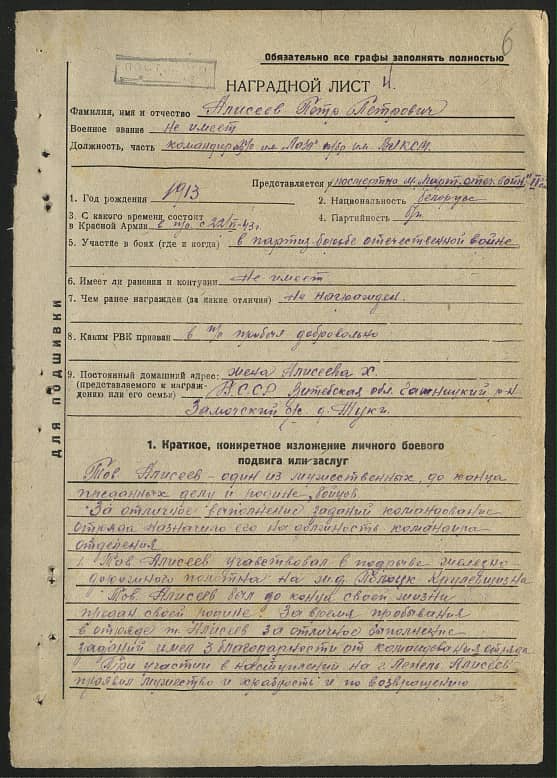 6
Обязательно все графы заполнять полностью
НАГРАДНОЙ ЛИСТ 4.
Фамилия, имя и отчество Алисеев Петр Петрович
Военное звание не имеет
Должность, часть командир п/о им. ВЛКСМ.
Представляется посмертно м. отеч. войн." II ст.
1. Год рождения 1913
2. Национальность белорус
3. С какого времени состоит
в Красной Армии в п/о. с 22/ 43 г.
4. Партийность б/п.
5. Участие в боях (где и когда) в партиз. борьбе отечественной войне
6. Имеет ли ранения и контузии Не имеет
7. Чем ранее награжден (за какие отличия) Не награжден.
8. Каким РВК призван в п/о прибыл добровольно
9. Постоянный домашний адрес: жена Алисеева Х.
(представляемого к награж-
дению или его семьи) БССР Витебская обл. р-н
с/с. д.
ДЛЯ ПОДШИВКИ
1. Краткое, конкретное изложение личного боевого
подвига или заслуг
Тов. Алисеев - один из мужественных, до конца
делу и родине, бойцов.
За отличное выполнение заданий командование
отряда назначило его на должность командира
отделения
Тов. Алисеев учавствовал в подрыве железно-
дорожного полотна на ж.д. Полоцк
Тов. Алисеев был до конца своей жизни
предан своей родине. За время пребывания
в отряде т. Алисеев за отличное выполнение
заданий имел 3 благодарности от командования отряда
При участии в наступлении на г. Лепель Алисеев
проявил мужество и храбрость и по возвращению